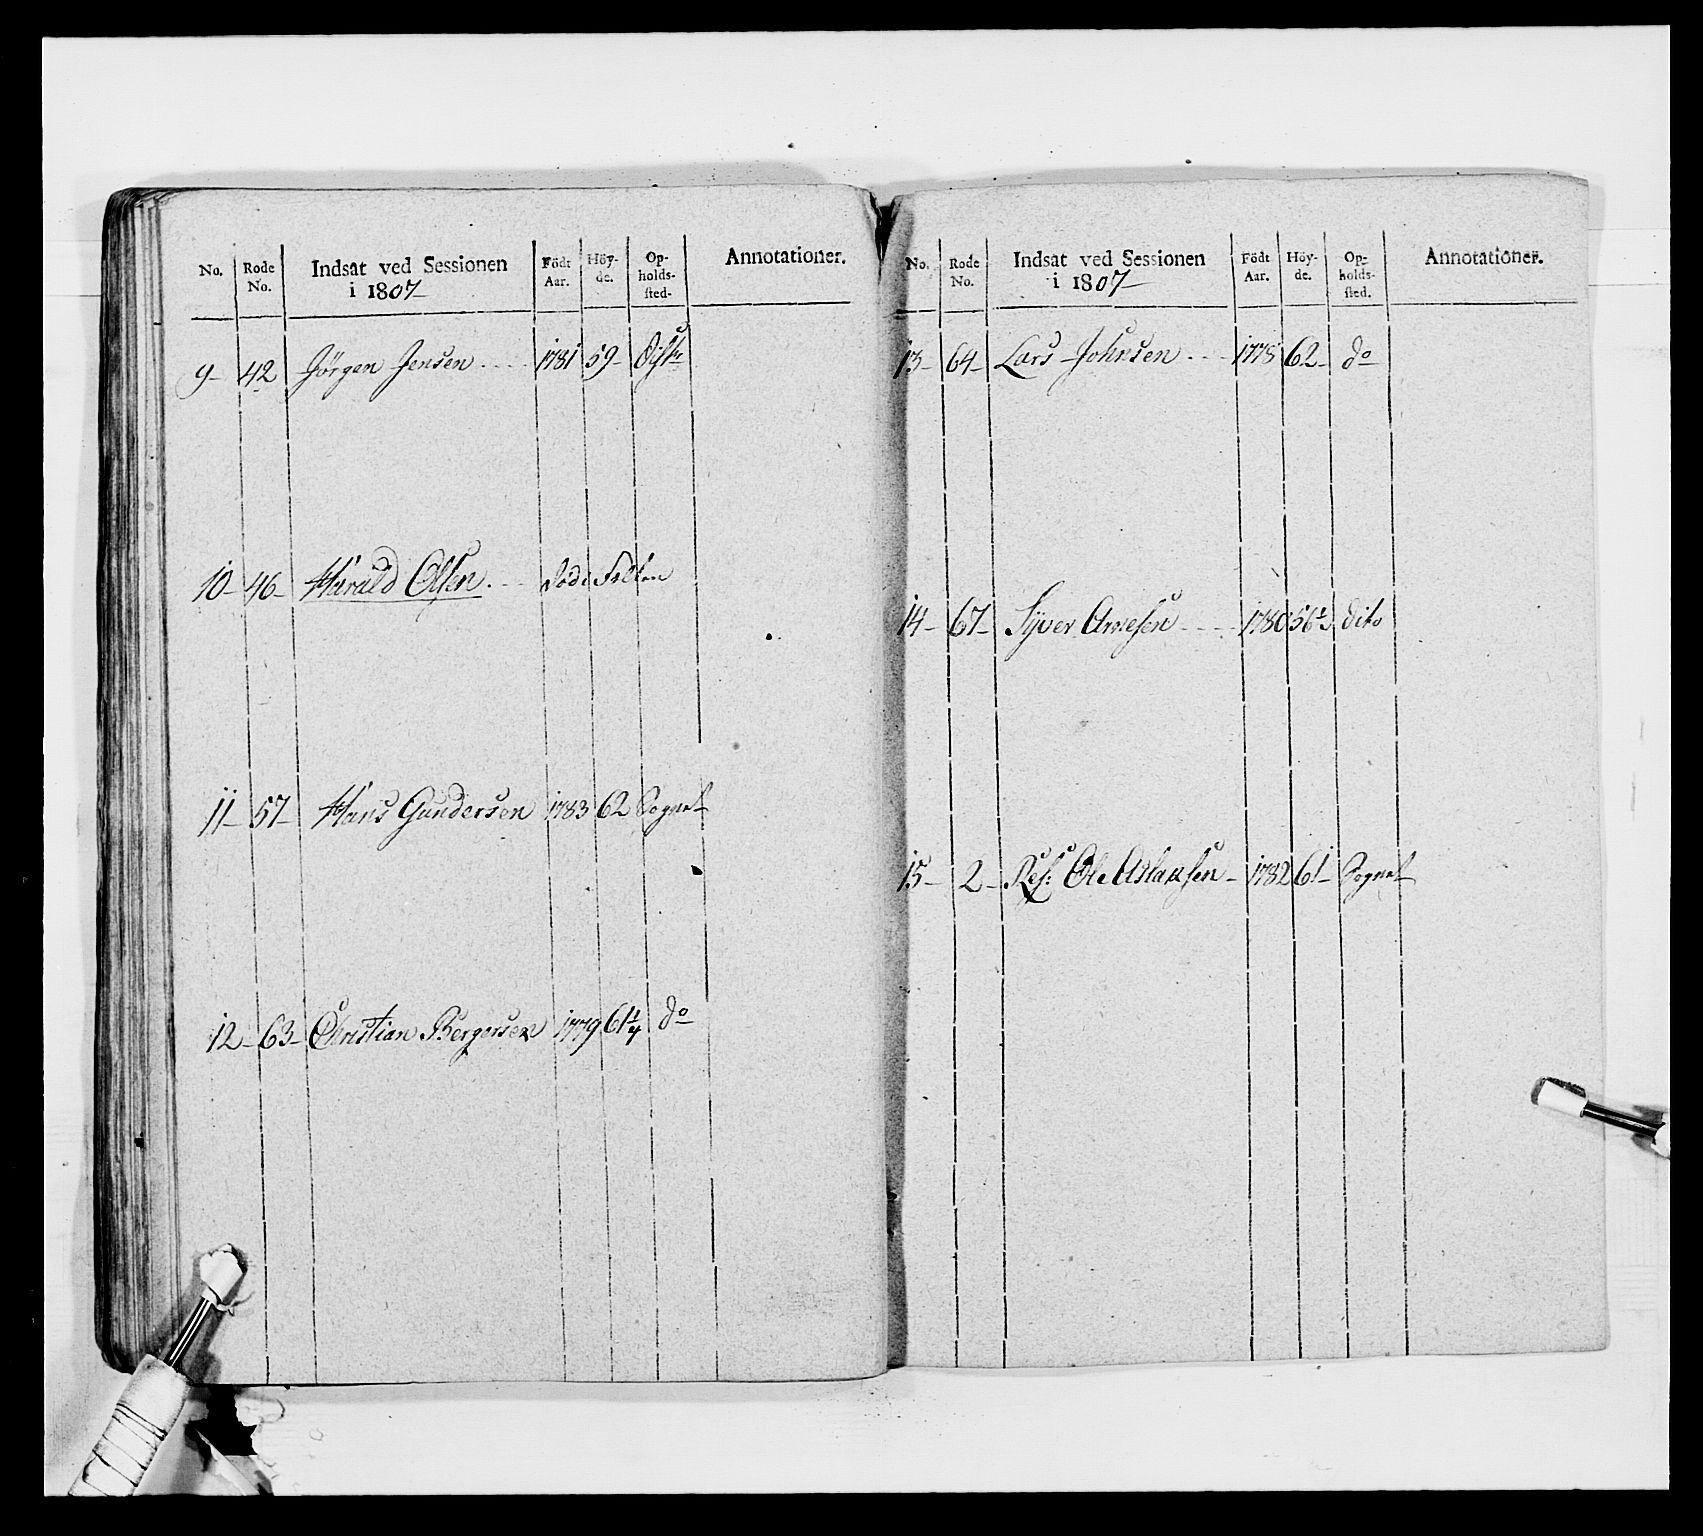 No. Rode No. Indsat ved Sessionen i 1807 Födt Aar. Höy-de. Op-holds-sted. Annotationer.
9 - 42 Jörgen Jensen 1781 59 -
10 - 46 - Harald Olsen
11 - 57 - Hans Gundersen 1783 62 Sognet
12 - 63 - Christian Bergersen 1779 61 1/4 do
No. Rode No. Indsat ved Sessionen i 1807 Födt Aar. Höy-de. Op-holds-sted. Annotationer.
13 - 64 - Lars Johnsen 1778 62 - do
14 - 67 - Syver Arnesen 1780 56 1/2 dito
15 - 2 - Res: Ole Aslaksen - 1782 61 - Sognet